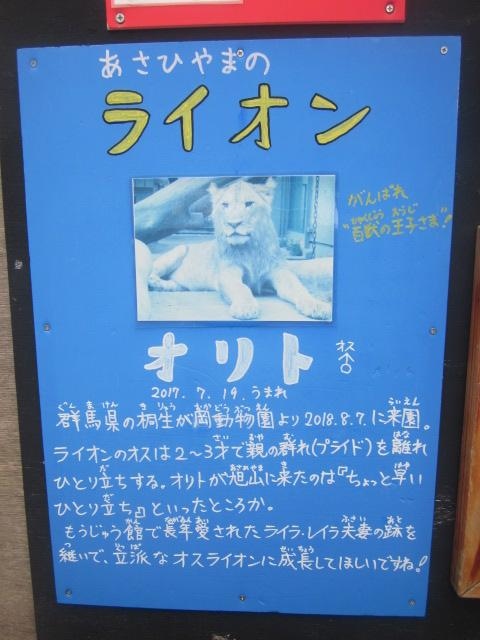 あさひやまの
ライオン
がんばれ
"百獣の王子さま"!
オリト オス
2017. 7. 19. うまれ
群馬県の桐生が岡動物園より2018.8.7.に来園。
ライオンのオスは2~3才で親の群れ(プライド)を離れ
ひとり立ちする。オリトが旭山に来たのは『ちょっと早い
ひとり立ち』といったところか。
もうじゅう館で長年愛されたライラ・レイラ夫妻の跡を
継いで、立派なオスライオンに成長してほしいですね!